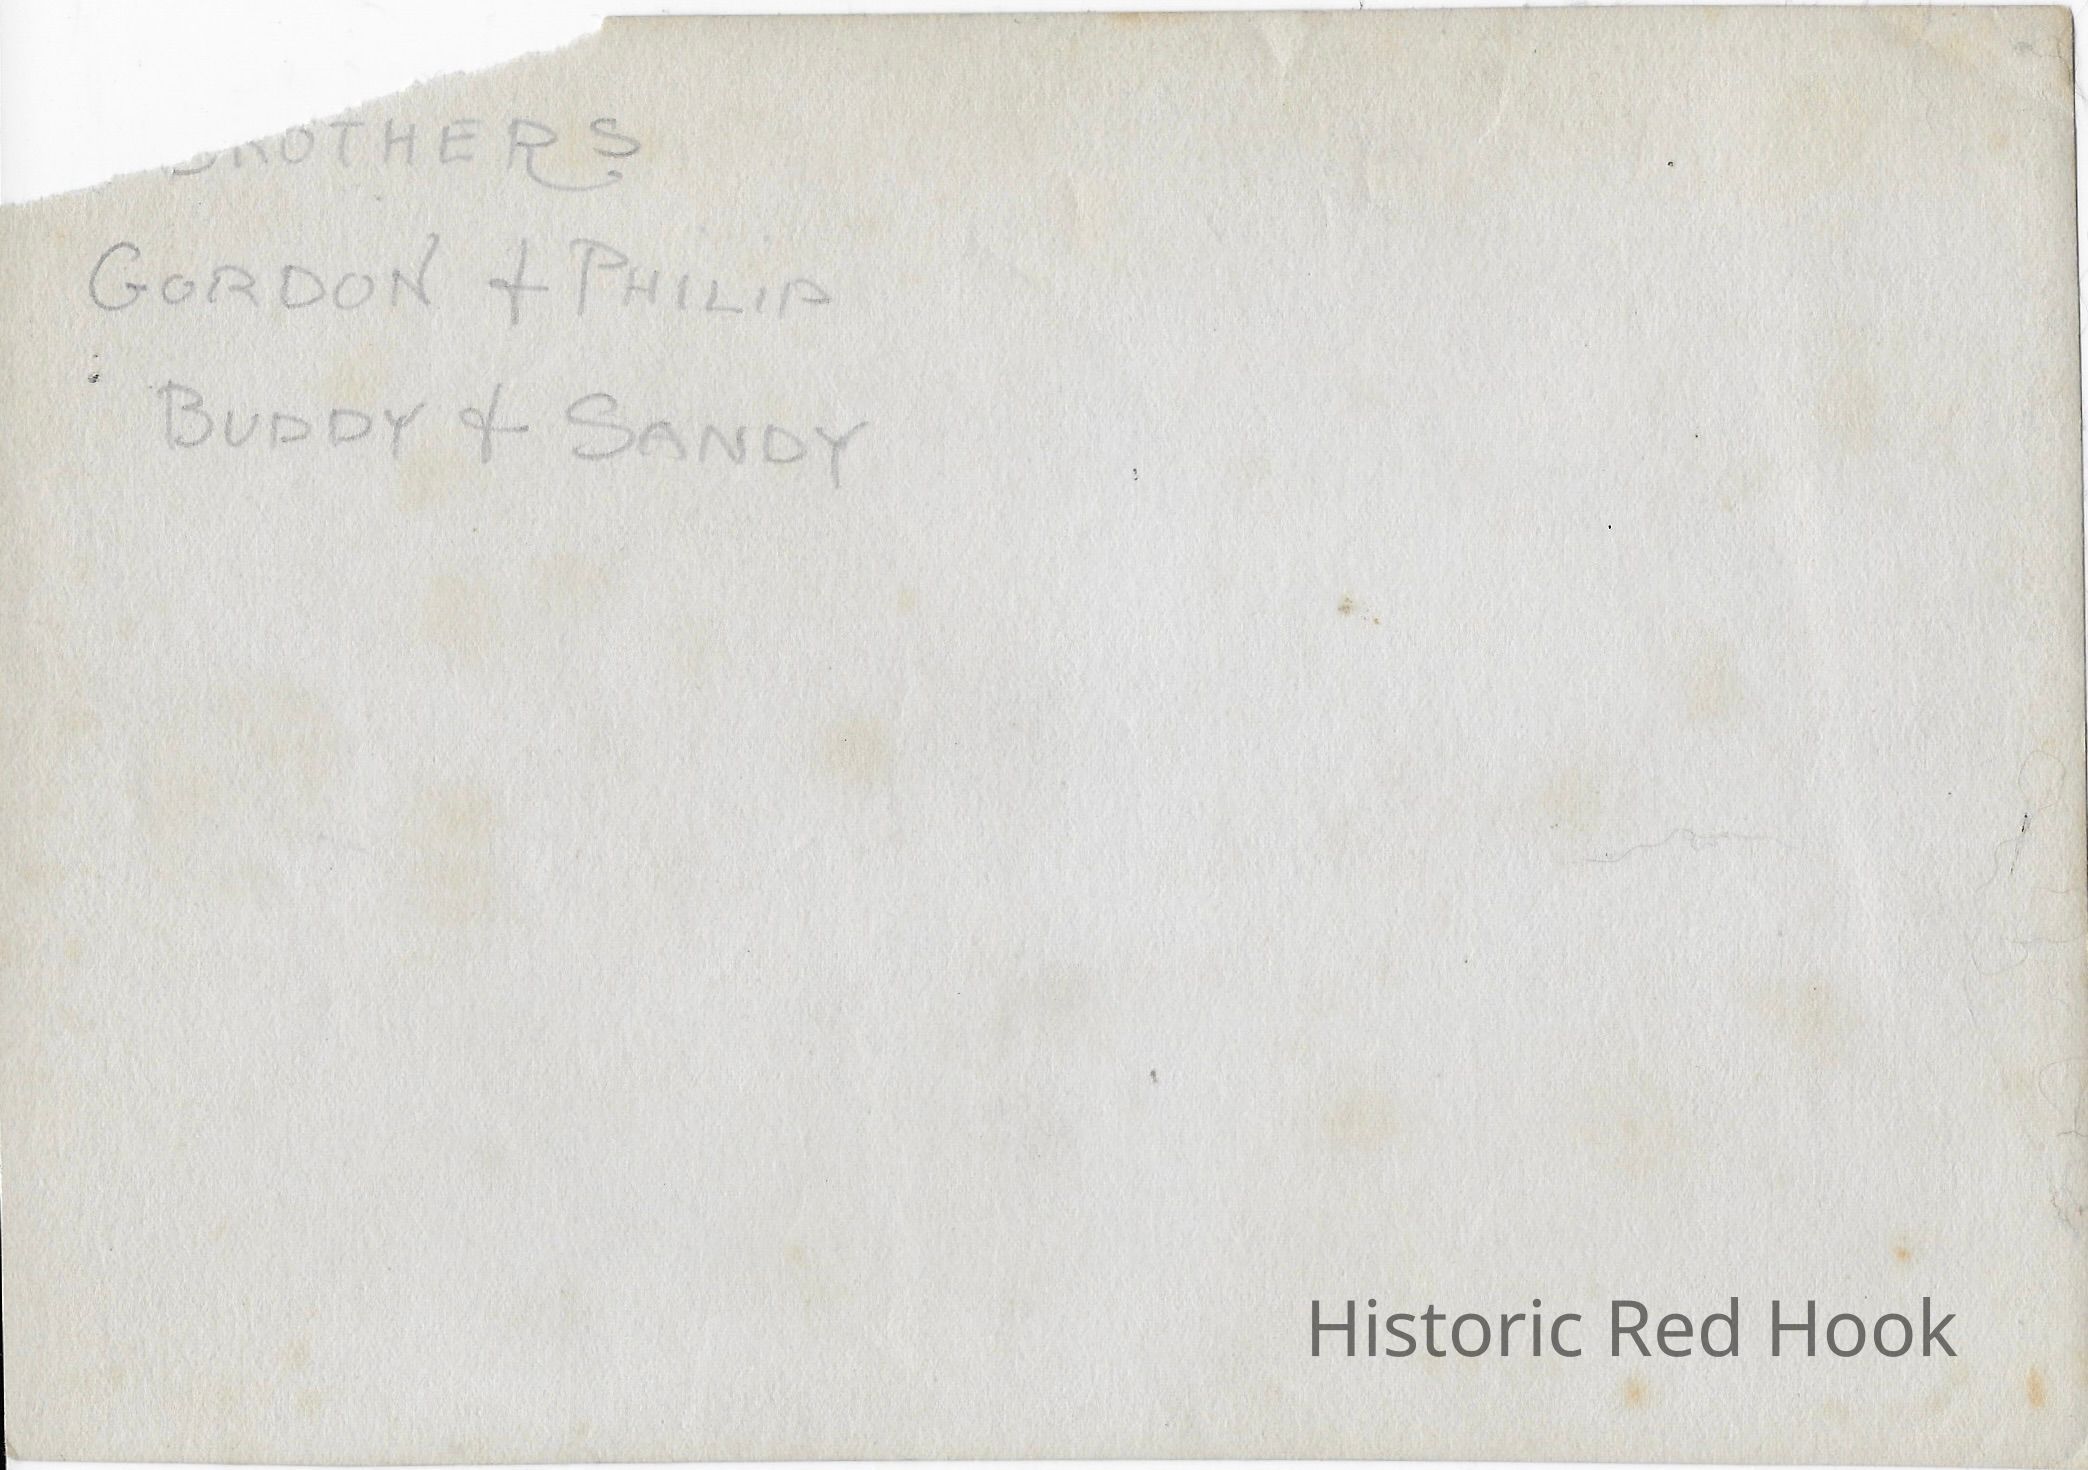 BROTHERS
GORDON & PHILIP
BUDDY & SANDY
Historic Red Hook